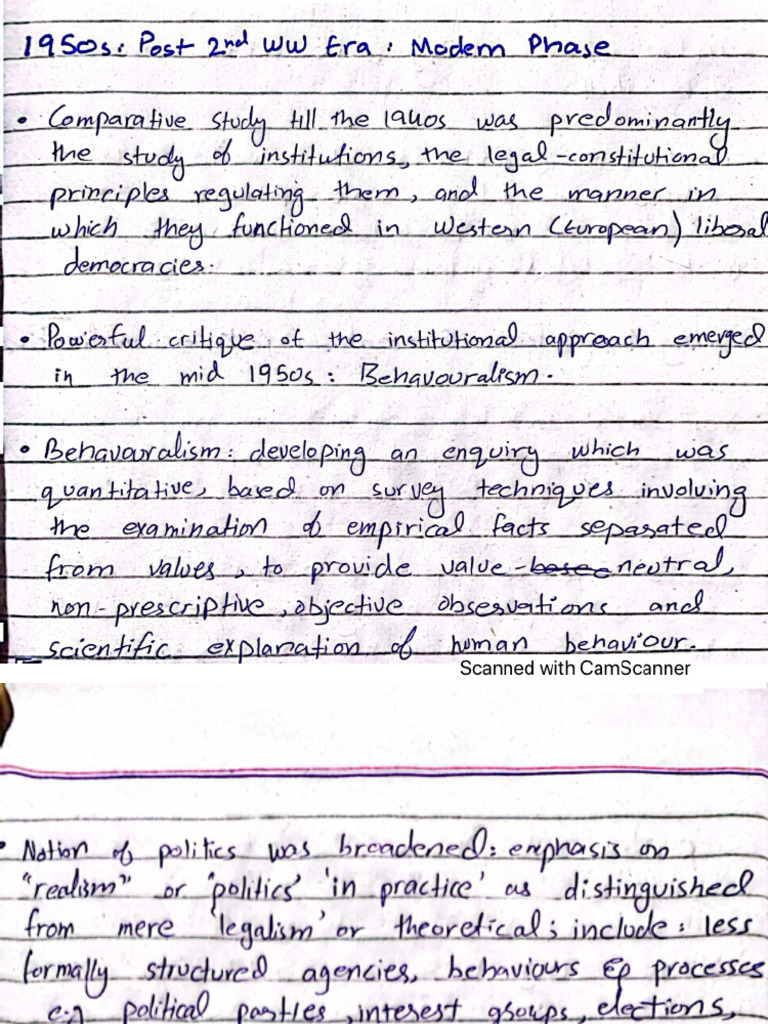 1950s: Post 2nd WW Era: Modern Phase
• Comparative study till the 1940s was predominantly
the study of institutions, the legal-constitutional
principles regulating them, and the manner in
which they functioned in Western (European) liberal
democracies.
• Powerful critique of the institutional approach emerged
in the mid 1950s: Behavouralism.
• Behavouralism: developing an enquiry which was
quantitative, based on survey techniques involving
the examination of empirical facts separated
from values, to provide value-neutral,
non-prescriptive, objective observations and
scientific explanation of human behaviour.
Scanned with CamScanner
• Notion of politics was broadened: emphasis on
"realism" or 'politics' 'in practice' as distinguished
from mere 'legalism' or theoretical; include: less
formally structured agencies, behaviours & processes
e.g political parties, interest groups, elections,